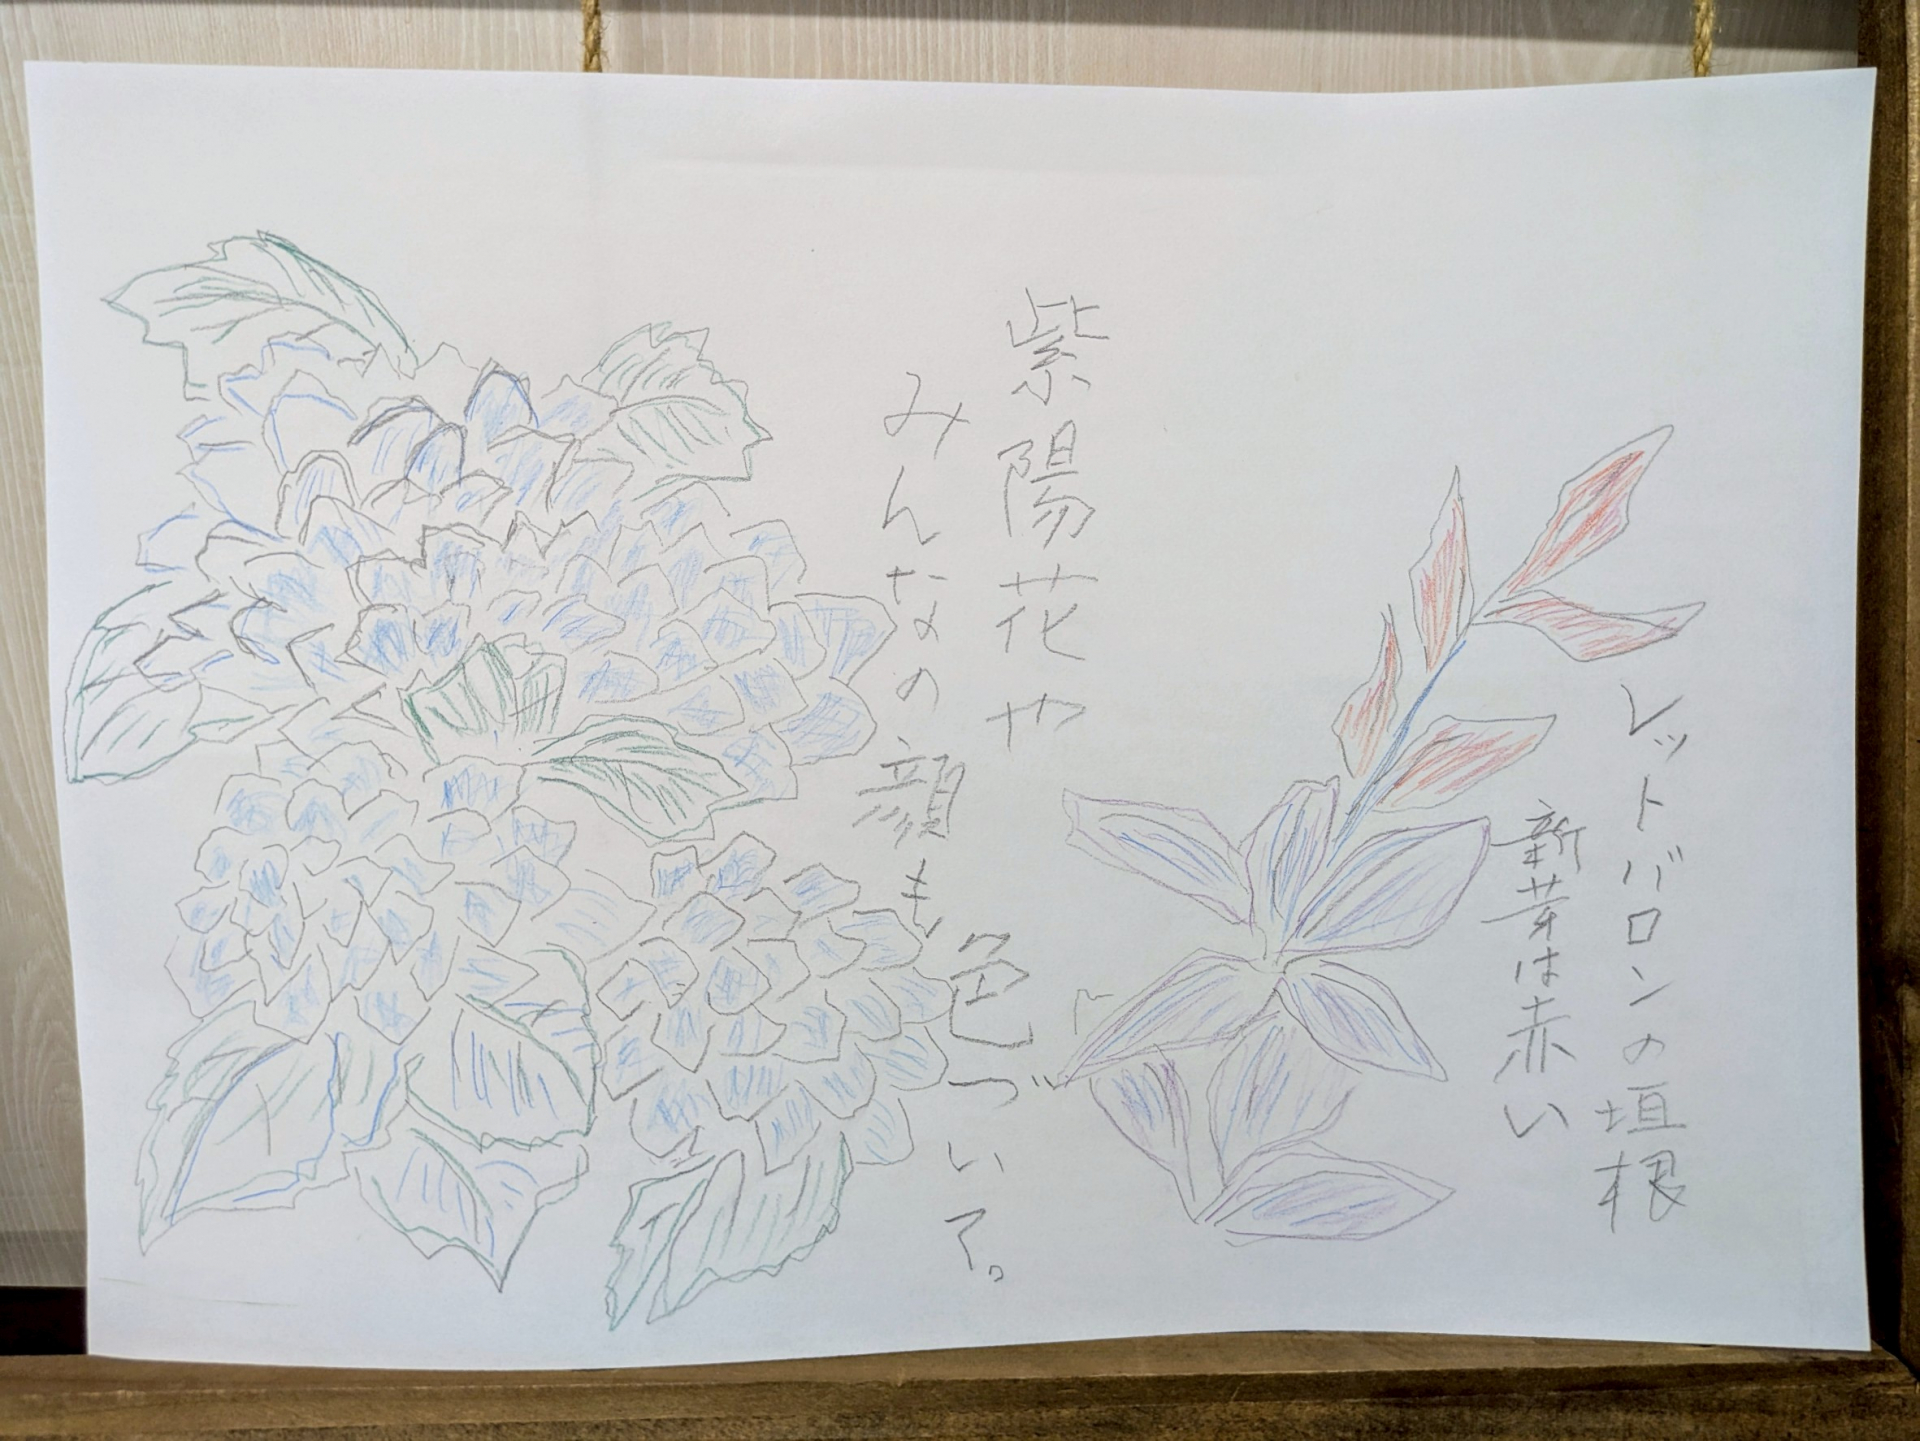 レットバロンの垣根
新芽は赤い
紫陽花や
みんなの顔も
色づいて。